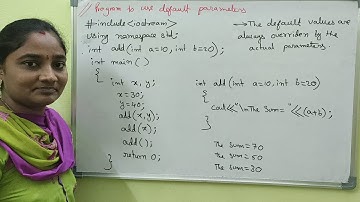 // Program to use default parameters
#include<iostream>
using namespace std;
int add(int a=10, int b=20);
int main()
{
int x, y;
x=30;
y=40;
add(x,y);
add(x);
add();
return 0;
}
→ The default values are
always overriden by the
actual parameters.
int add(int a=10, int b=20)
{
cout<<"\n The Sum = "<<(a+b);
}
The sum=70
The sum=50
The sum=30